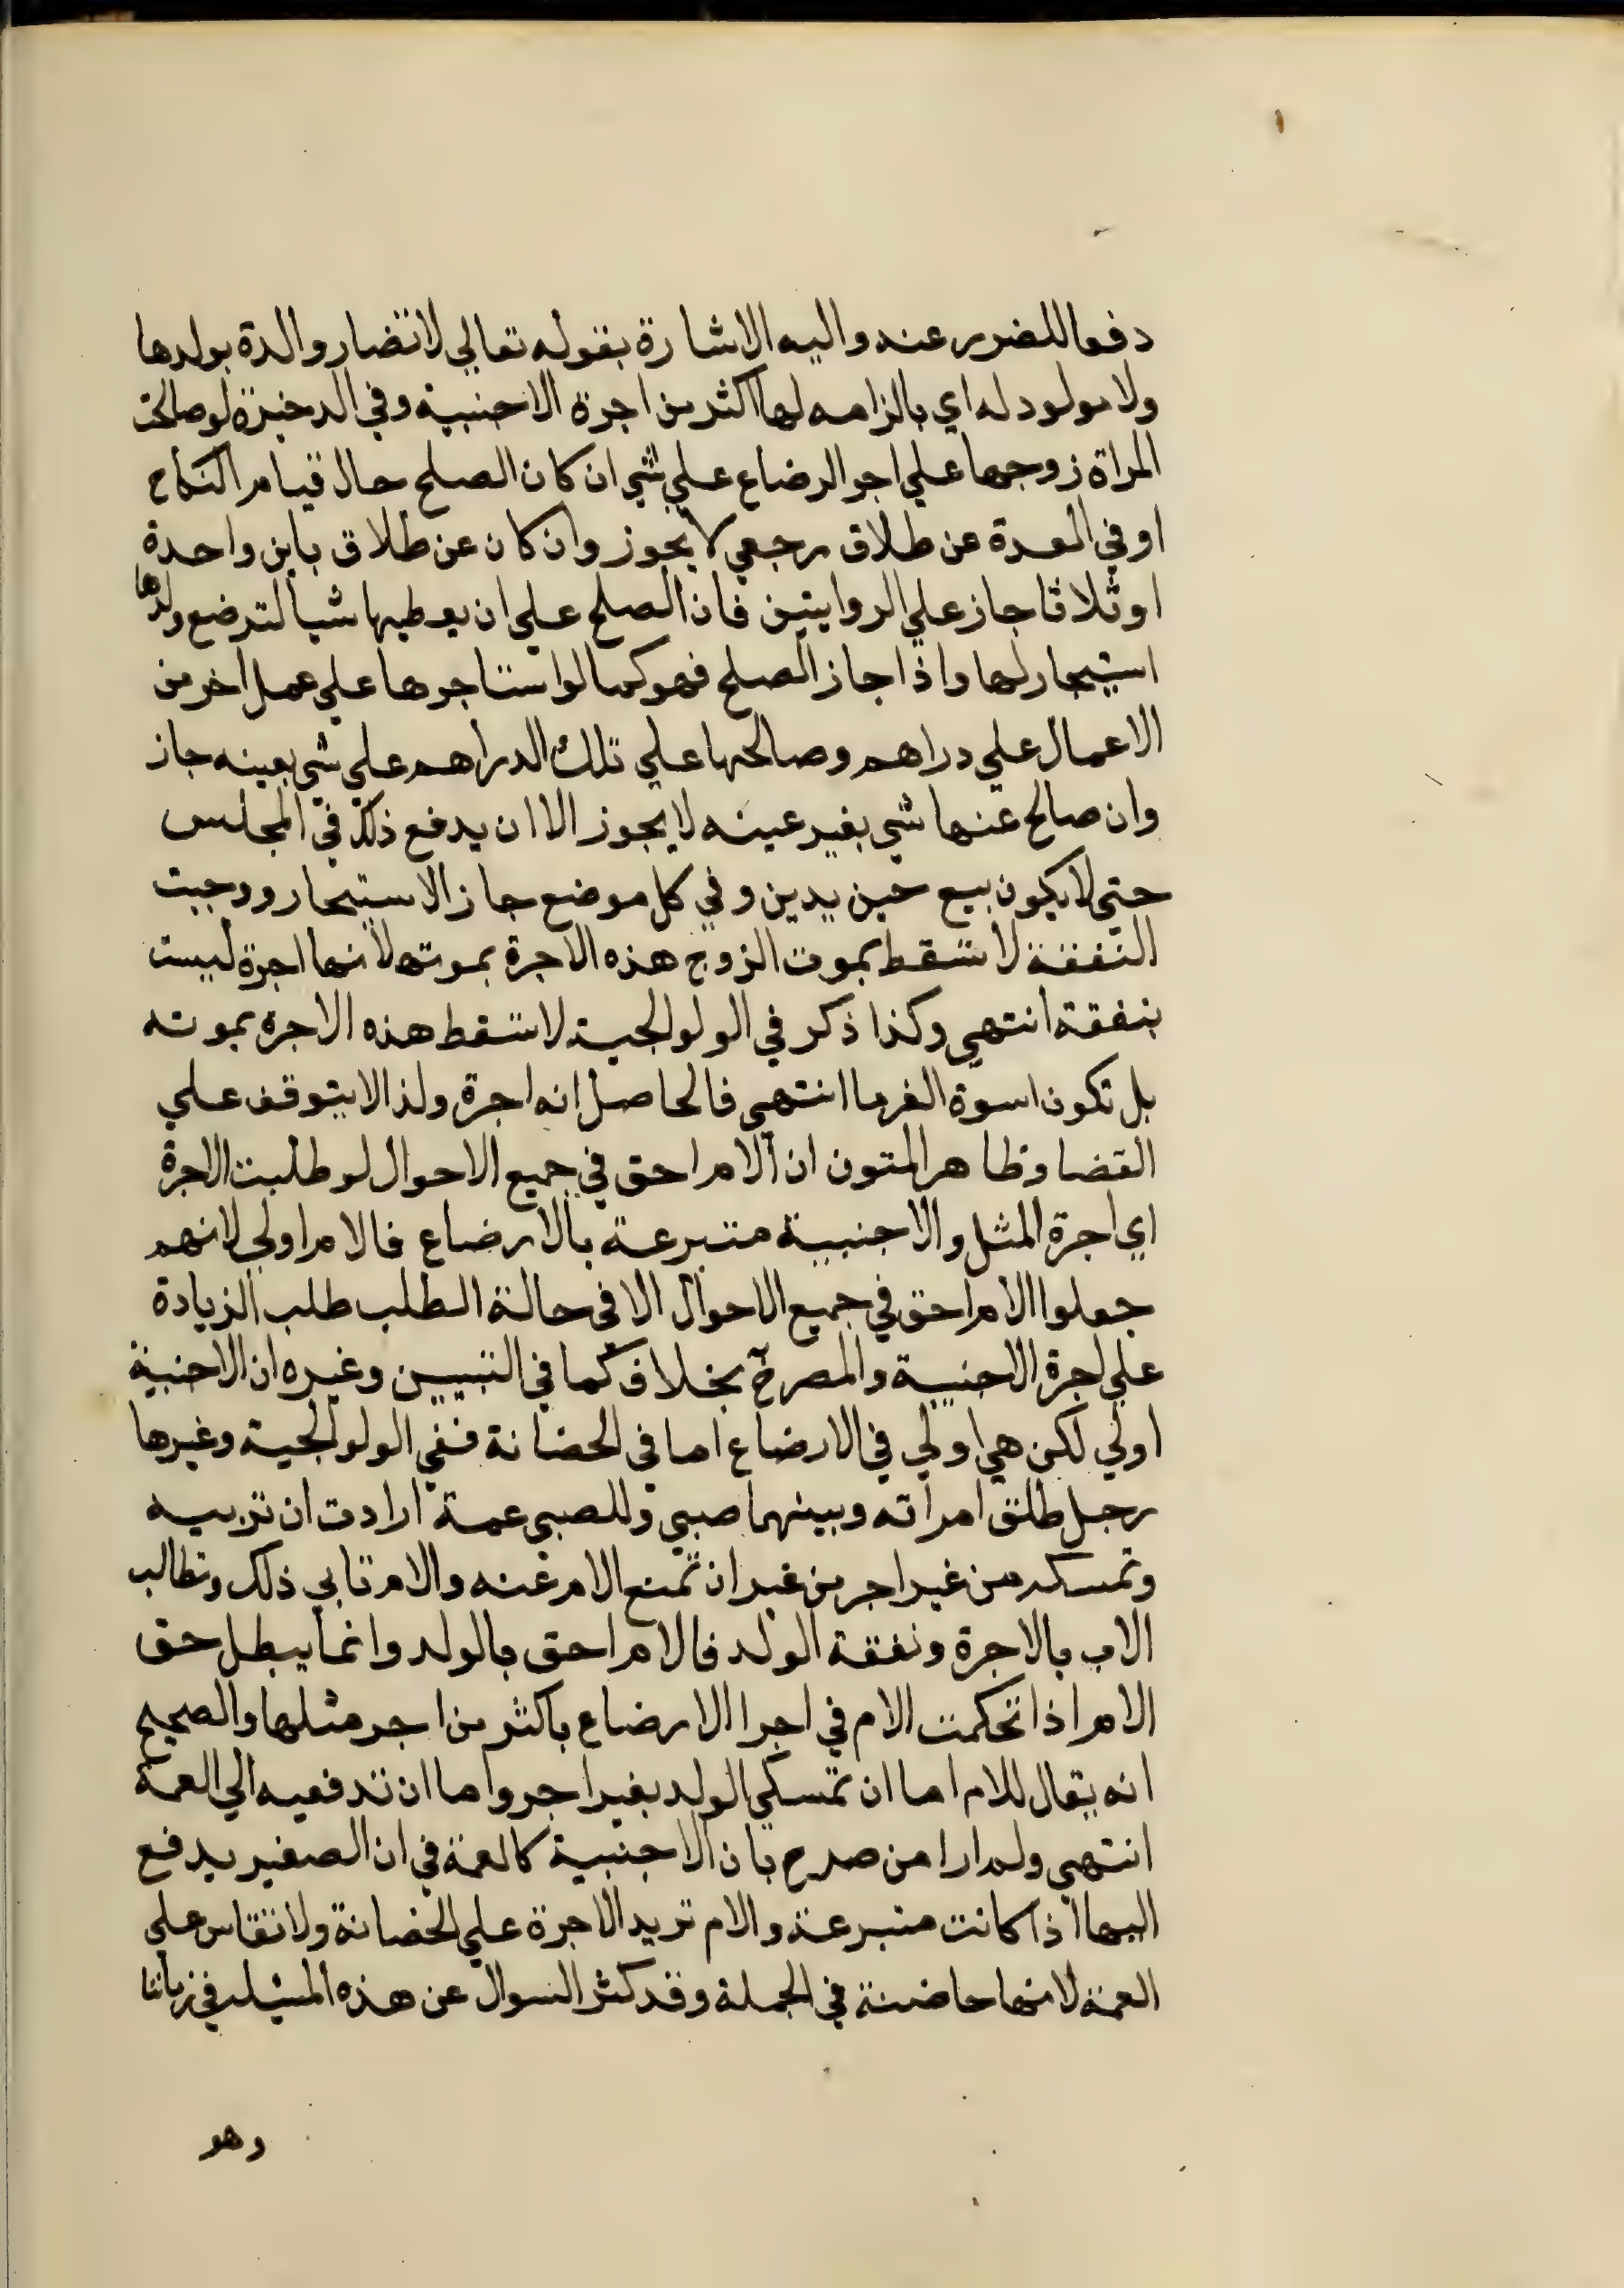 دفعا للضرر عنه واليه الاشارة بقوله تعالي لا تضار والدة بولدها
ولا مولود له اي بالزامه لها اكثر من اجرة الاجنبية وفي الدخيرة لو صالحت
المراة زوجها علي اجر الرضاع علي شي ان كان الصلح حال قيام النكاح
او في العدة عن طلاق رجعي لا يجوز وان كان عن طلاق باين واحدة
او ثلاثا جاز علي الروايتين فان الصلح علي ان يعطيها شيا لترضع ولدها
استيجار لها واذا جاز الصلح فهو كما لو استاجرها علي عمل اخر من
الاعمال علي دراهم وصالحها علي تلك الدراهم علي شي بعينه جاز
وان صالح عنها شي بغير عينه لا يجوز الا ان يدفع ذلك في المجلس
حتي لا يكون بيع حين بدين وفي كل موضع جاز الاستيجار ووجبت
النفقة لا تسقط بموت الزوج هذه الاجرة بموته لانها اجرة ليست
بنفقة انتهي وكذا ذكر في الولوالجية لا تسقط هذه الاجرة بموته
بل تكون اسوة الغرما انتهي فالحاصل انه اجرة ولذا لا يتوقف علي
القضا وظاهر المتون ان الام احق في جميع الاحوال لو طلبت الاجرة
اي اجرة المثل والاجنبية متبرعة بالارضاع فالام اولي لانهم
جعلوا الام احق في جميع الاحوال الا في حالة الطلب طلب الزيادة
علي اجرة الاجنبية والمصرح بخلافه كما في التبيين وغيره ان الاجنبية
اولي لكن هي اولي في الارضاع اما في الحضانة ففي الولوالجية وغيرها
رجل طلق امراته وبينهما صبي وللصبي عمة ارادت ان تربيه
وتمسكه من غير اجر من غير ان تمنع الام عنه والام تابي ذلك وتطالب
الاب بالاجرة ونفقة الولد فالام احق بالولد وانما يبطل حق
الام اذا تحكمت الام في اجر الارضاع باكثر من اجر مثلها والصحيح
انه يقال للام اما ان تمسكي الولد بغير اجر واما ان تدفعيه الي العمة
انتهي ولم ار من صرح بان الاجنبية كالعمة في ان الصغير يدفع
اليها اذا كانت متبرعة والام تريد الاجرة علي الحضانة ولا تقاس علي
العمة لانها حاضنة في الجملة وقد كثر السوال عن هذه المسئلة في زماننا
وهو